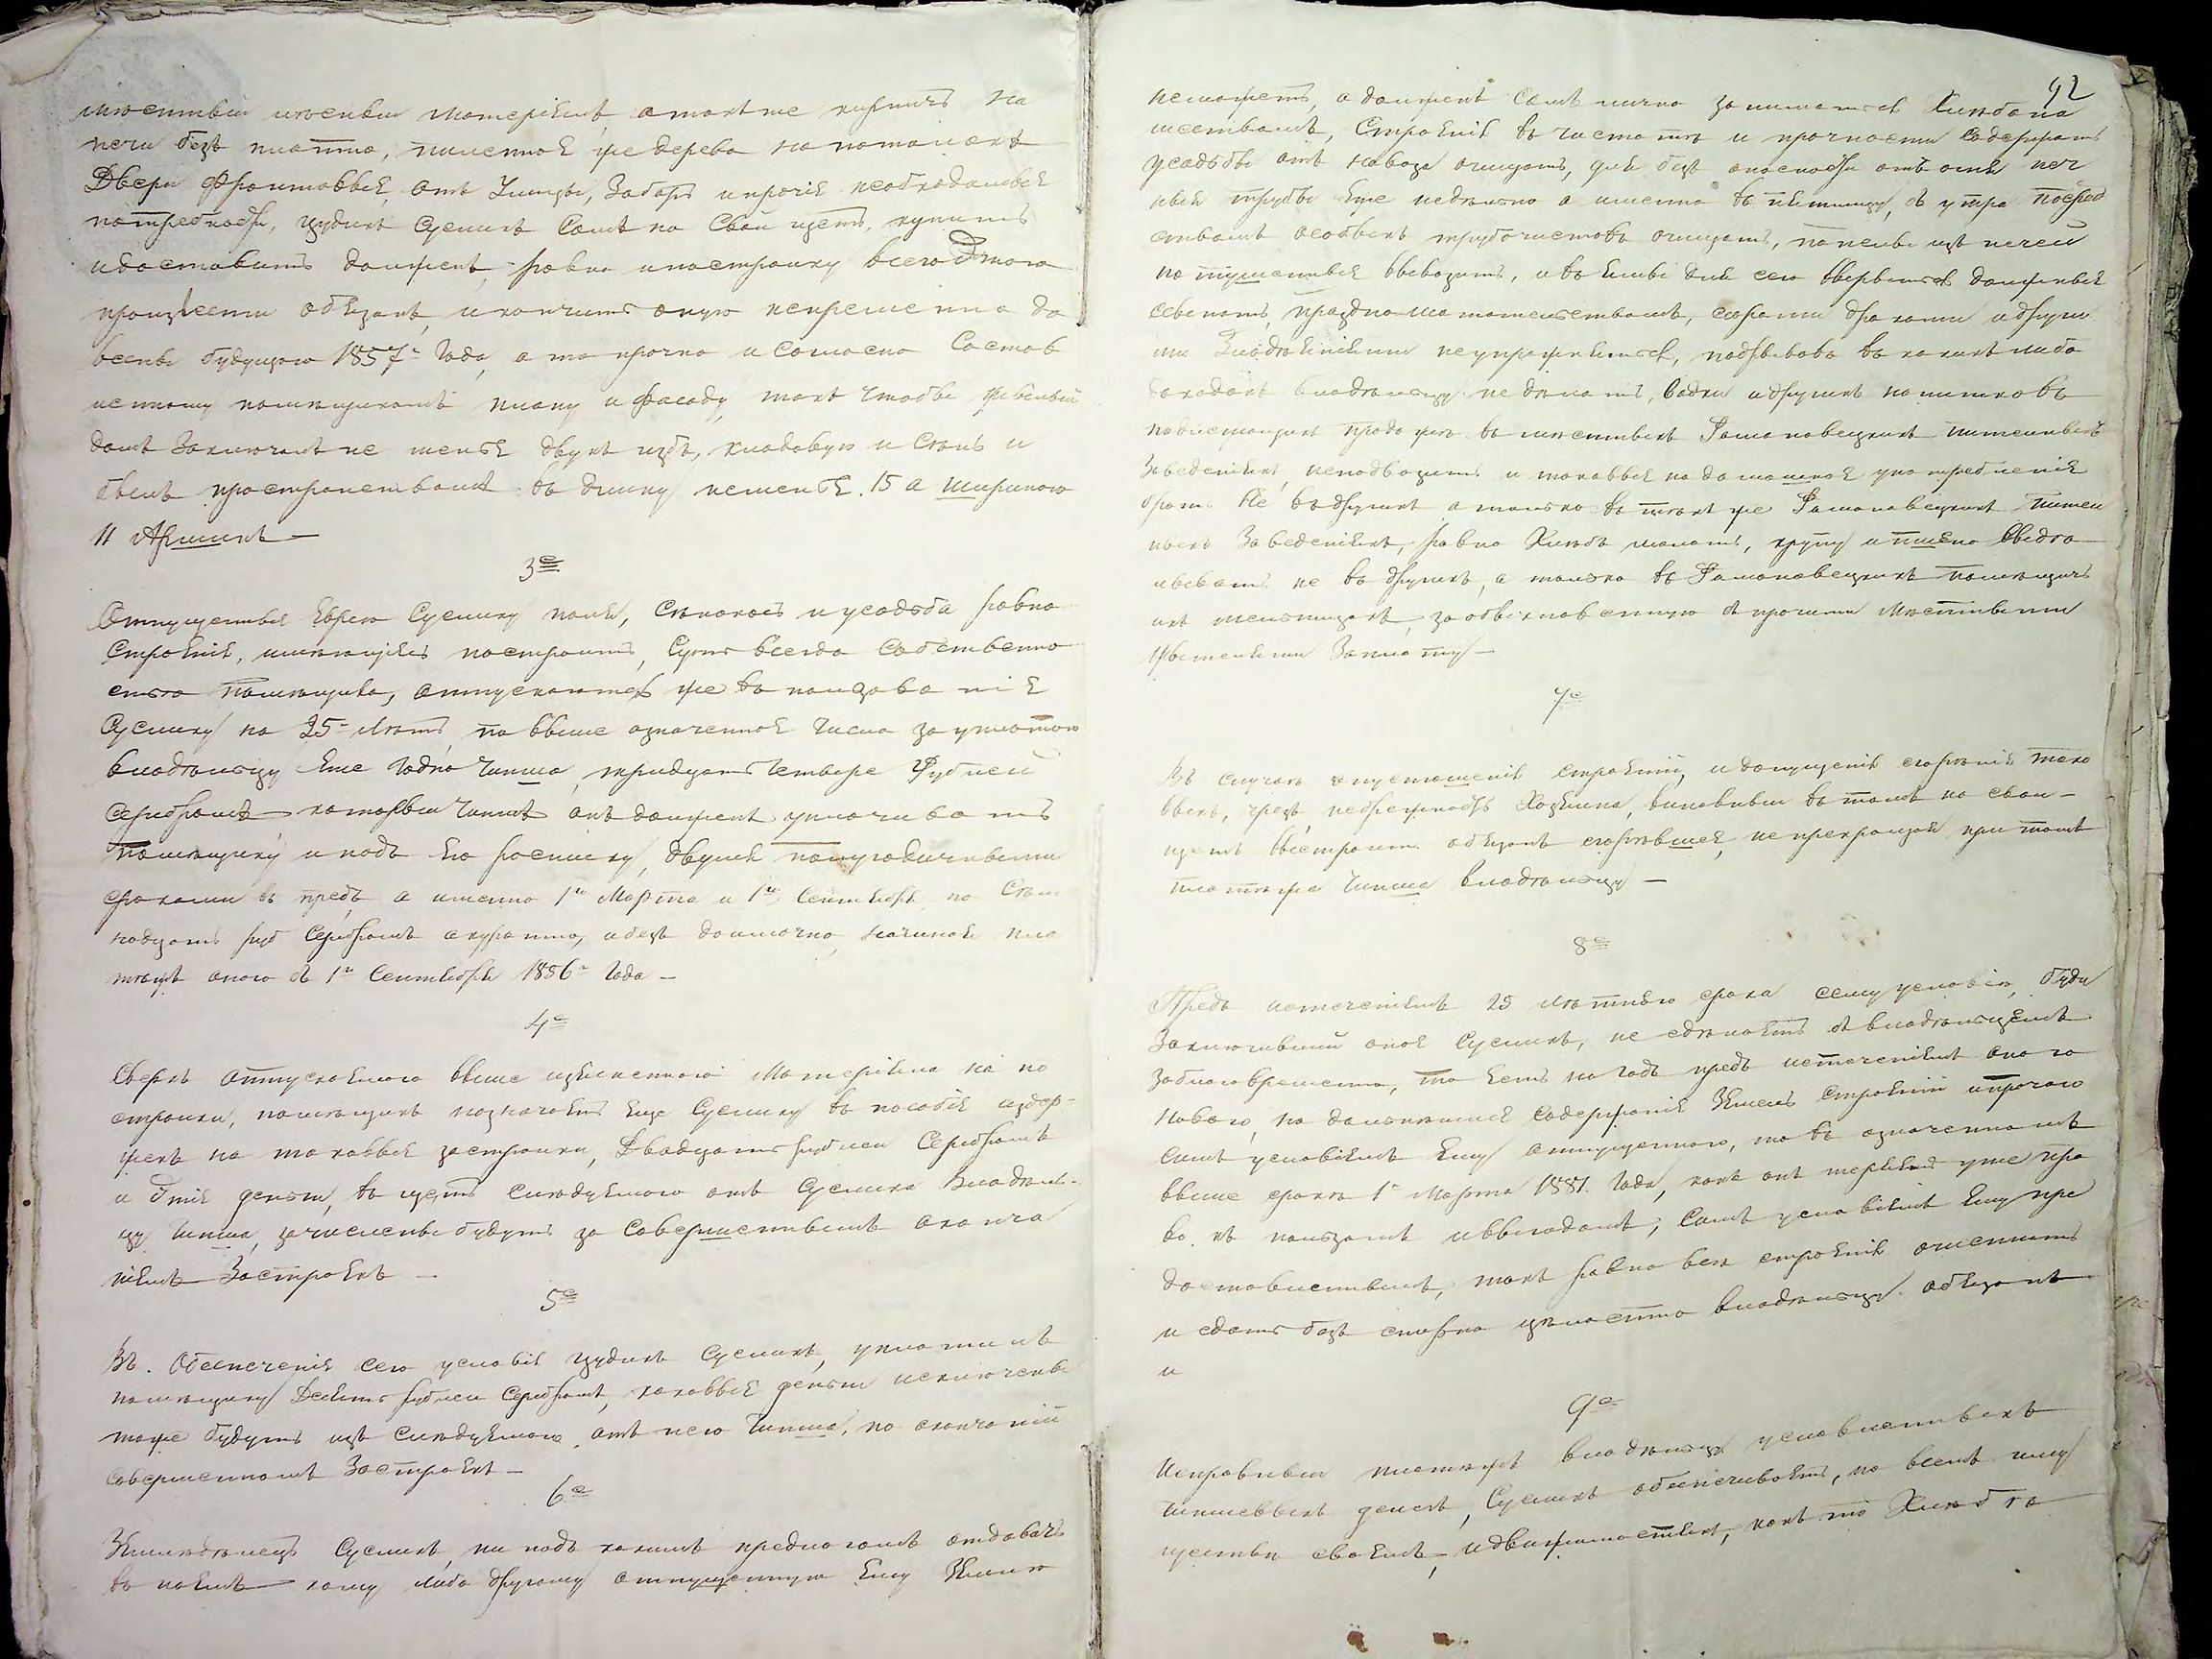 лѣсный матеріялъ, а также кирпичъ на
печи безъ платно, пиленное же дерево на потолокъ
Двери фронтовые, отъ Улицы, Заборъ и прочіе необходимые
потребности, Іудикъ Суликъ Самъ на Свой щетъ, купить
и доставить долженъ, равно и постройку Всего Этого
произвести обязанъ, и кончить оную непременно до
осени будущого 1857 Года, а то прочно и Согласно Состав
ленному помѣщикомъ плану и фасаду, такъ чтобы
домъ Заключалъ не менѣе двухъ избъ, кладовую и Сѣнь и
былъ пространствомъ въ длину неменѣе 15 а шириною
11 Аршинъ —
3е
Отпущенные Еврею Сулику поля, Сѣнокосъ и усадьба равно
Строеніе, имѣющіеся построить, Суть всегда Собственно
стью Помѣщика, отпускаются же въ пользованіе
Сулику на 25 Лѣтъ, по выше означенное Число за уплатою
владѣльцу Еже Годно Чинша, тридцать Четыре Рублей
Серебромъ который Чиншъ онъ долженъ уплачивать
помѣщику и подъ Его росписку, двумя полугодичными
сроками въ предъ, а именно 1го Марта и 1го Сентября, по Сем
надцать руб Серебромъ акуратно, и безъ доимочно, начиная пла
тежъ оного съ 1го Сентября 1856 Года —
4е
Сверхъ отпускаемого выше изъясненного Матеріяла на по
стройки, помѣщикъ назначаетъ еще Сулику въ пособіе издер-
жекъ на таковые застройки, Двадцать рублей Серебромъ
и Этіе деньги, въ щетъ следуемого отъ Сулика Владѣль-
цу Чинша, зачислены будутъ за Совершественымъ оконча
ніемъ Застроекъ —
5е
Въ Обеспеченіе сего условія Іудикъ Суликъ, уплатилъ
помѣщику Десять рублей Серебромъ, каковые деньги исключены
тоже будутъ изъ Слѣдуемого отъ него Чинша, по окончаніи
Совершенномъ Застроекъ —
6е
Землевладѣлецъ Суликъ, ни подъ какимъ предлогомъ отдавать
въ наемъ кому либо другому отпущенную Ему Землю
42
неможетъ, а долженъ Самъ лично заниматся Хлѣбопа
шествомъ, Строеніе въ чистотѣ и прочности Содержать
усадьбы отъ навоза очищать, для безъ опасности отъ огня печ
ные трубы Еже недѣльно а именно въ пятницу, съ утра посред
ствомъ особыхъ трубочистовъ очищать, попелъ изъ печей
потушеный вывозить, и въ ямы для сего вверытся должные
сыпать, праздно шатательствомъ, ссорами драками и други
ми Злодѣяніями неупражняться, подрывовъ въ какихъ либо
доходахъ владѣльцу не дѣлать, водки и другихъ напитковъ
подлежащихъ продажѣ въ мѣстныхъ Фалиовецкихъ питейныхъ
Заведеніяхъ, неподвозить и таковые на домашное употребленіе
брать Не въ другихъ а только въ тѣхъ же питей
ныхъ Заведеніяхъ, равно Хлѣбъ молоть, крупу и пшено выдѣ
лывать не въ другихъ, а только въ помѣщич
ихъ мельницахъ, за обыкновенную съ прочими Мѣстными
Жителями Заплату —
7е
Въ случаѣ опустошенія строеній, и допущенія сгорѣнія тако
выхъ, чрезъ небрежность Хозяина, виновный въ томъ на свой —
щетъ выстроить обязанъ сгорѣвшее, не прекращая притомъ
платежа Чинша владѣльцу —
8е
Предъ истеченіемъ 25 лѣтнего срока сему условію, буди
Заключивший оное Суликъ, не сдѣлаетъ съ владѣльцемъ
Заблаговременно, то есть на годъ предъ истеченіемъ оного
нового, на дальнѣйшее Содержаніе Земель Строеній и прочого
симъ условіемъ Ему отпущенного, то въ означенномъ
выше срокѣ 1 Марта 1881 Года, какъ онъ теряетъ уже пра
во къ пользамъ и выгодамъ, Симъ условіемъ Ему пре
доставленнымъ, такъ равно всѣ строеніе очистить
и сдать безъ спорно цѣлостно владѣльцу обязанъ
и
9е
Исправный платежъ владѣльцу условленныхъ
Чиншевыхъ денегъ, Суликъ обеспечиваетъ, на всемъ иму
ществѣ своемъ, и движимостяхъ, какъ то Хлѣбѣ